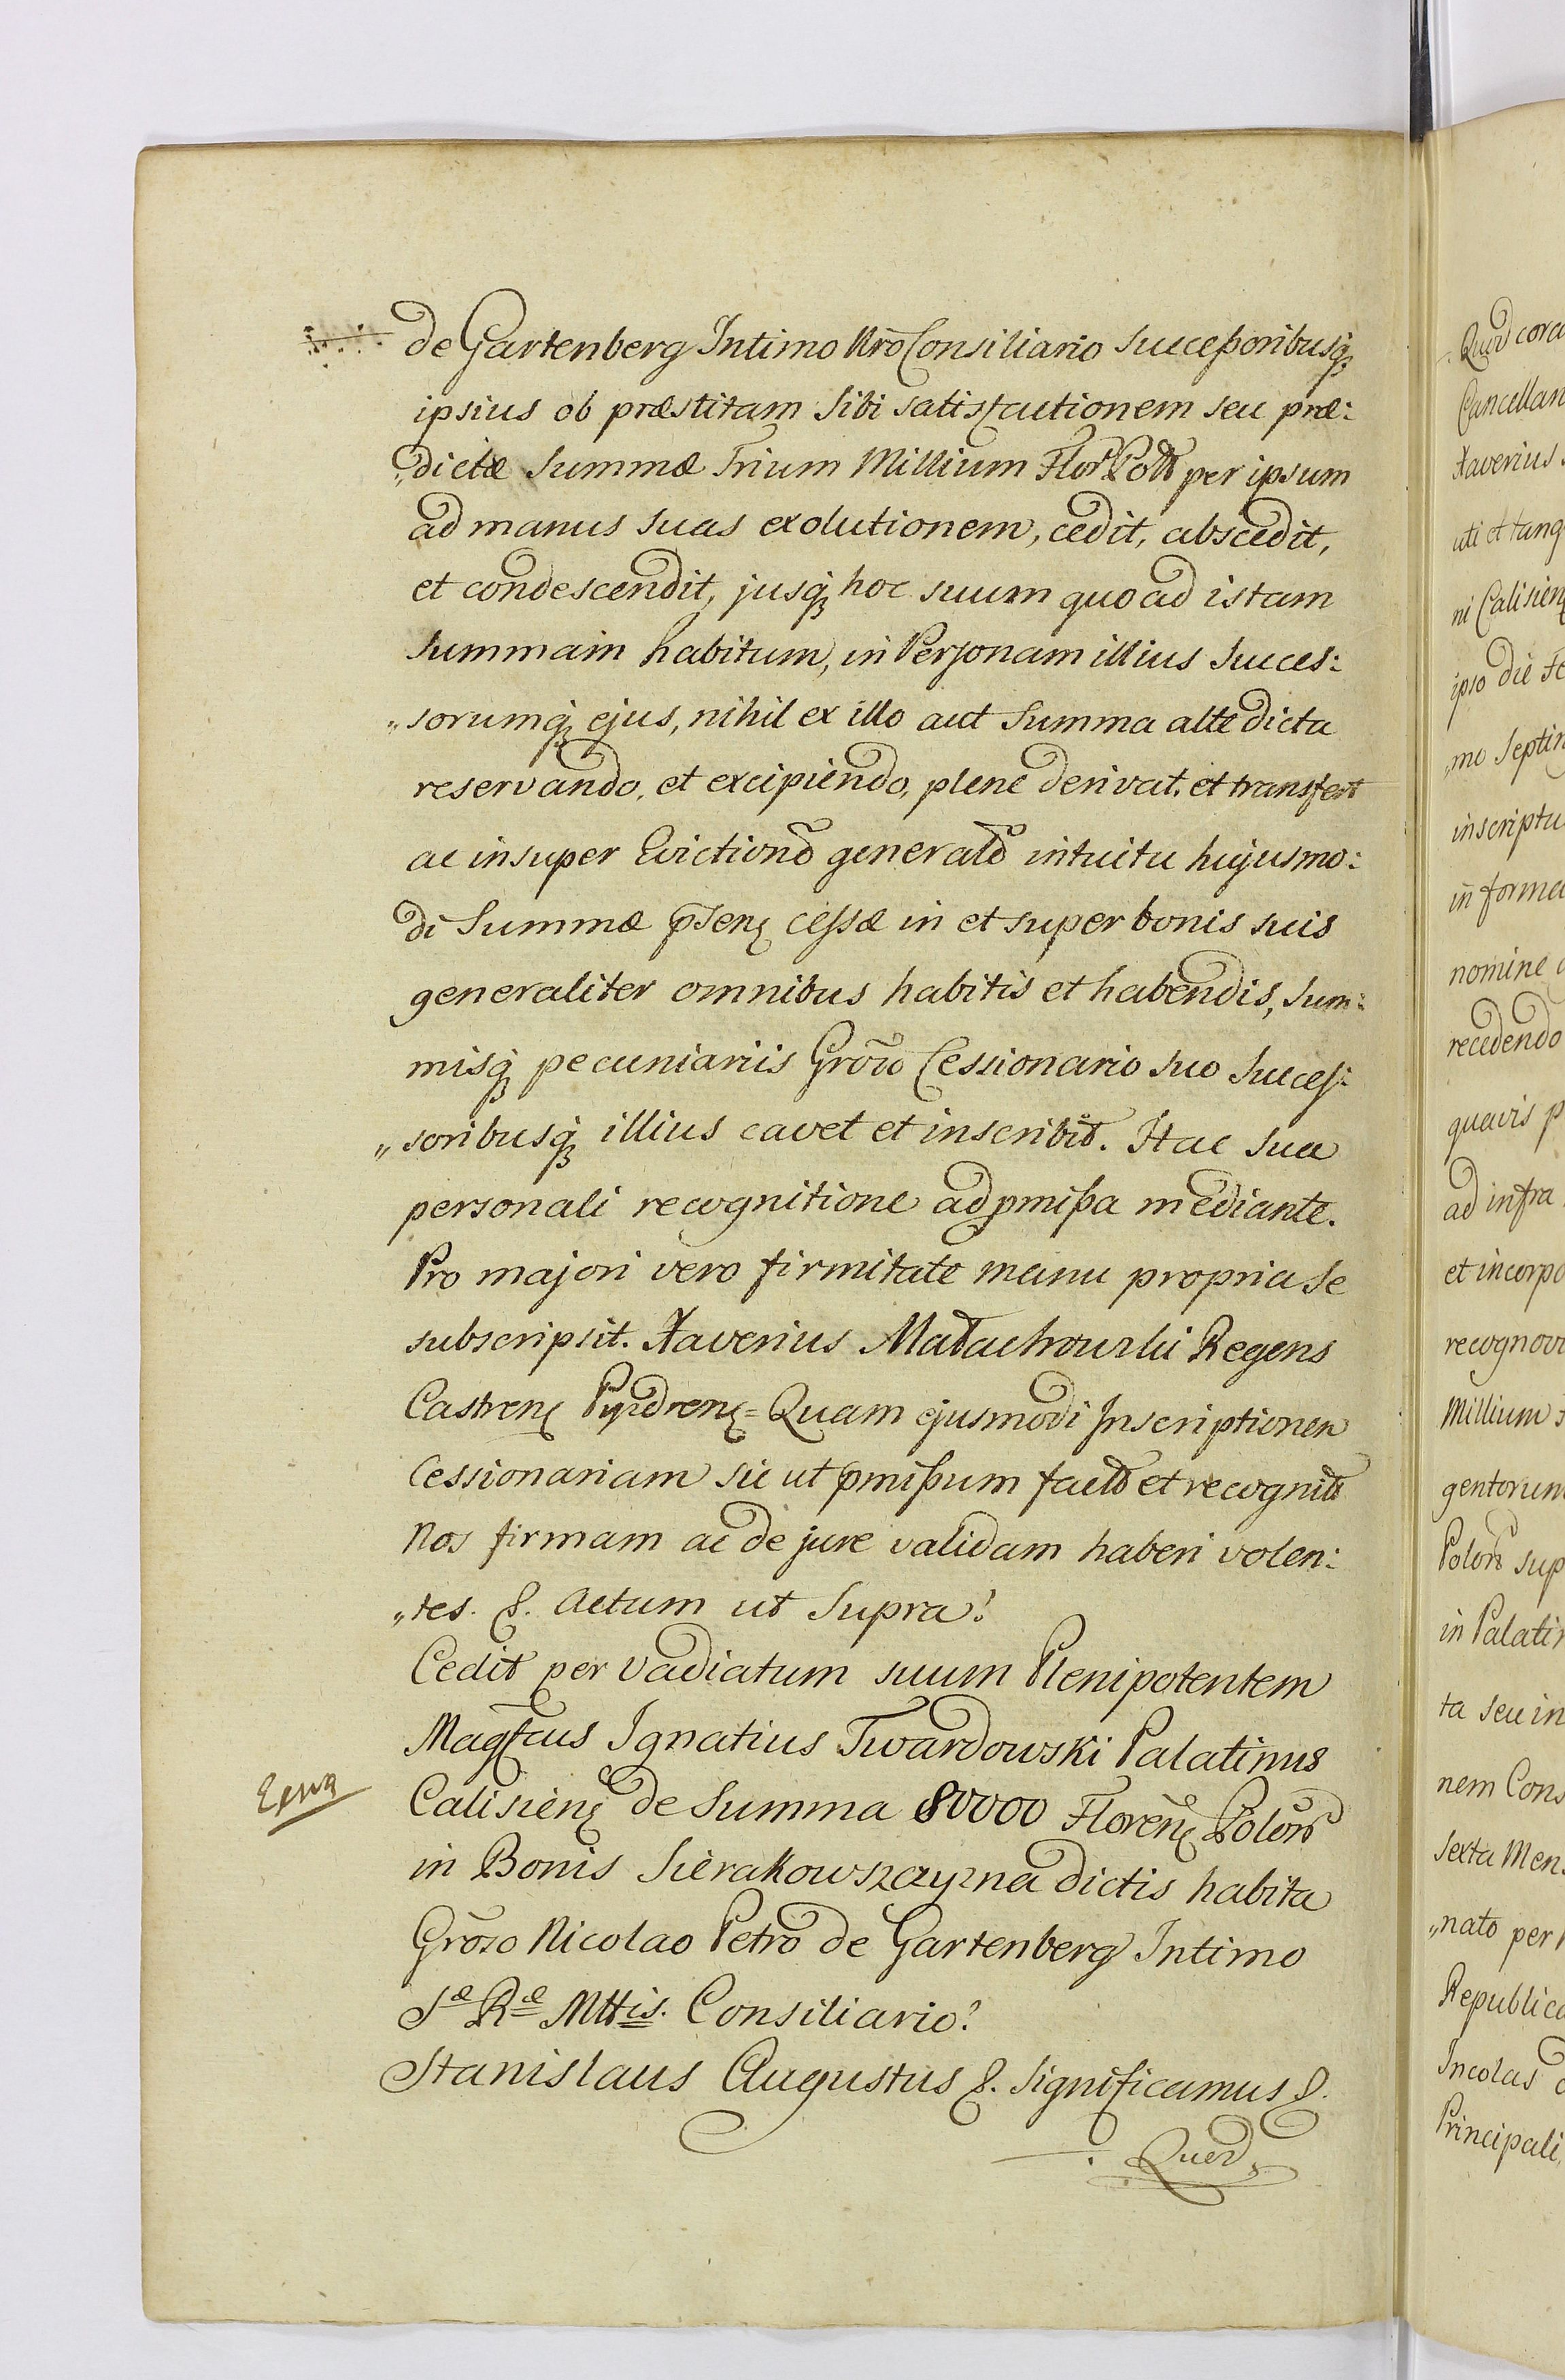 de Gartenberg Intimo Nrõ Consiliario Successoribusq́ꝫ
ipsius ob præstitam sibi satisfactionem seu præ:
„dictæ Summæ Trium Millium Flor: Poll: per ipsum
ad manus suas exolutionem, cedit, abscedit,
et condescendit, jusq́ꝫ hoc suum quoad istam
summam habitum, in Personam illius Succes:
„sorumq́ꝫ ejus, nihil ex illo aut Summa alte dicta
reservando, et excipiendo, plene derivat, et transfert
ac insuper Eviction: general: intuitu hujusmo:
di Summæ pñsenꝫ cessæ in et super bonis suis
generaliter omnibus habitis et habendis, Sum:
misq́ꝫ pecuniariis Grõso Cessionario suo Succes:
„soribusq́ꝫ illius cavet et inscribit. Hac sua
personali recognitione ad pmissa mediante.
Pro majori vero firmitate manu propria se
subscripsit. Xaverius Małachowski Regens
Castrenꝫ Pyzdrenꝫ = Quam ejusmodi Inscriptionem
Cessionariam sic ut pmissum fact: et recognit:
Nos firmam ac de jure validam haberi volen:
„tes. &. Actum ut Supra.
Cedit per vadiatum suum Plenipotentem
Magfcus Ignatius Twardowski Palatinus
Calisienꝫ de Summa 80000 Florenꝫ Polon:
in Bonis Sierakowszczyzna dictis habita
Grõso Nicolao Petro de Gartenberg Intimo
Sæ Ræ Mttis. Consiliario.
Stanislaus Augustus &. Significamus &.
Quod
Quod
Cancellari
Xaverius
uti et tanq
ni Calisienꝫ
ipso die Fe
„mo Septin
inscriptu
in forma
nomine
recedendo
quavis p
ad infra
et incorpo
recognovi
Millium
gentorum
Polon: sup
in Palatin
ta seu in
nem Cons
Sexta Mens
„nato per
Republica
Incolas
Principali